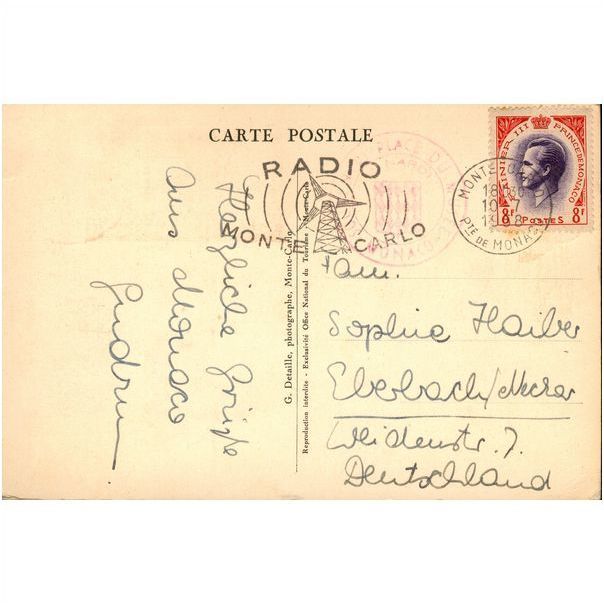 CARTE POSTALE
RADIO
MONTE CARLO
RAINIER III PRINCE DE MONACO
8F POSTES 8F
MONTE
PTE DE MONACO
PLACE DU
Herzliche Grüße
aus Monaco
Gudrun
G. Detaille, photographe, Monte-Carlo
Reproduction interdite - Exclusivité Office National du Tourisme - Monte-Carlo
Fam.
Sophie Haiber
Eberbach/Neckar
Weidenstr. 7.
Deutschland